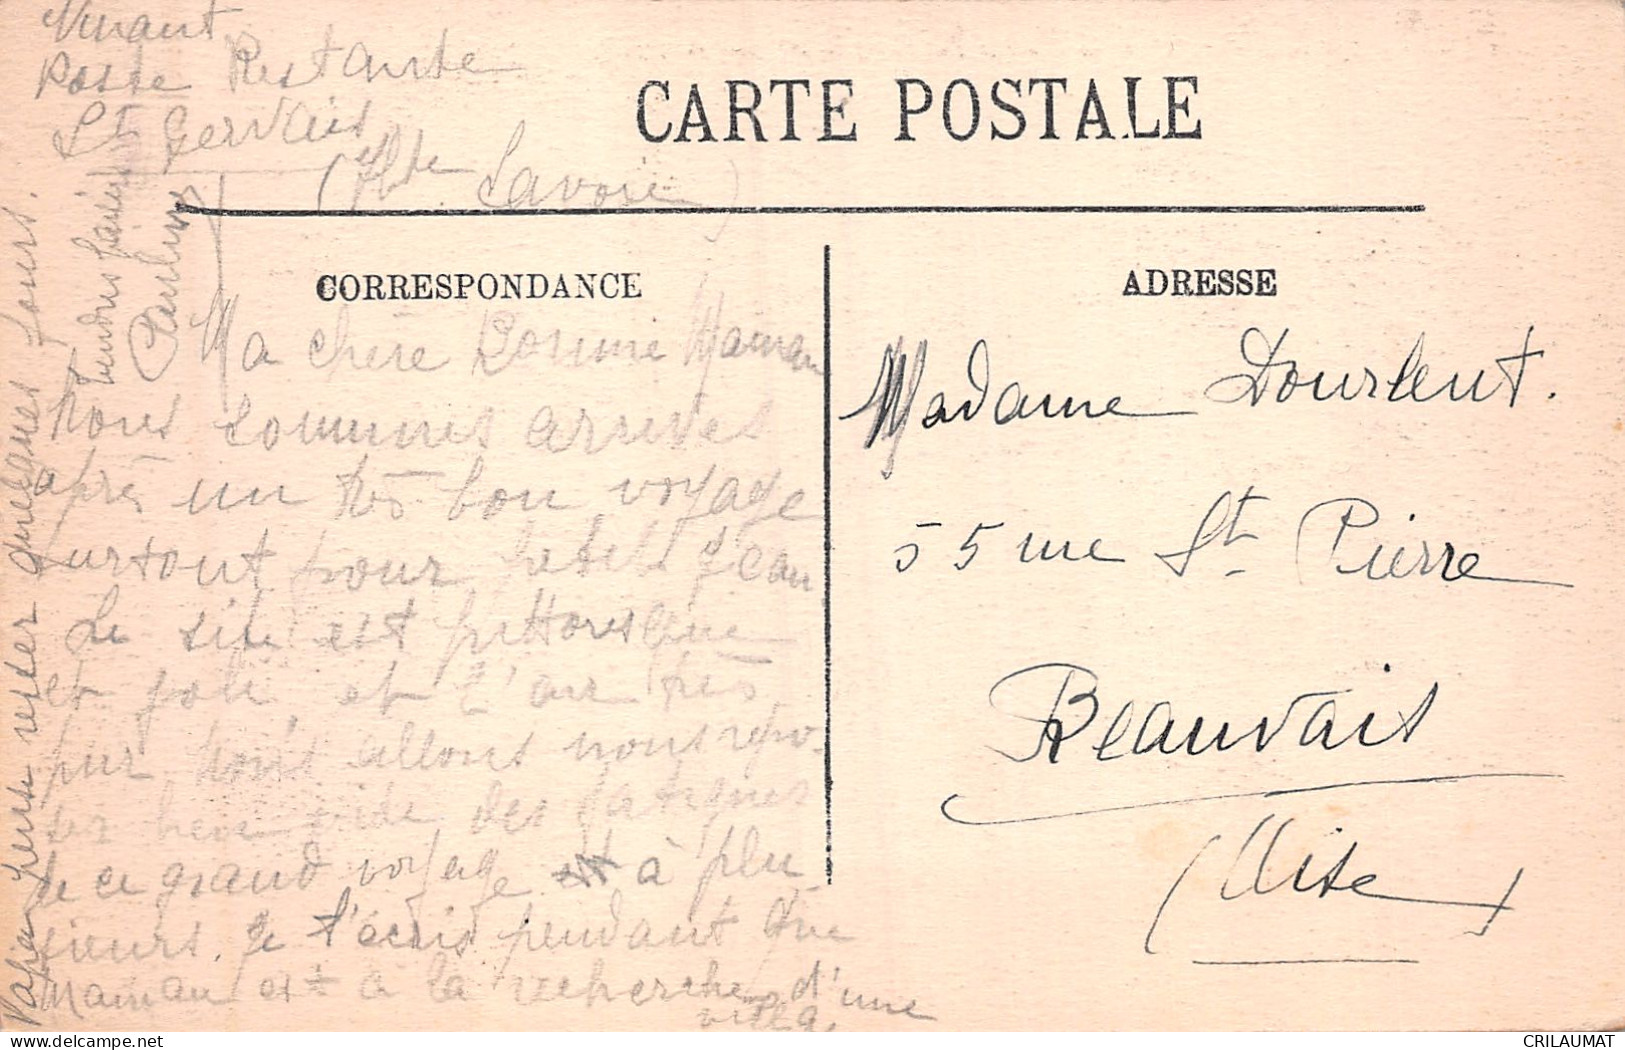 Vinant
Poste Restante
St Gervais
(Hte Savoie)
CARTE POSTALE
CORRESPONDANCE
ADRESSE
Ma chère Bonne Maman
Nous sommes arrivés
après un très bon voyage
surtout pour petit Jean.
Le site est pittoresque
et joli et l'air très
pur Nous allons nous repo-
ser bien vite des fatigues
de ce grand voyage à plu
sieurs. Je t'écris pendant que
Maman est à la recherche d'une
villa.
Papa pense rester quelques jours.
Tendres baisers
Madame Dourlent.
55 rue St Pierre
Beauvais
(Oise)
delcampe.net
CRILAUMAT